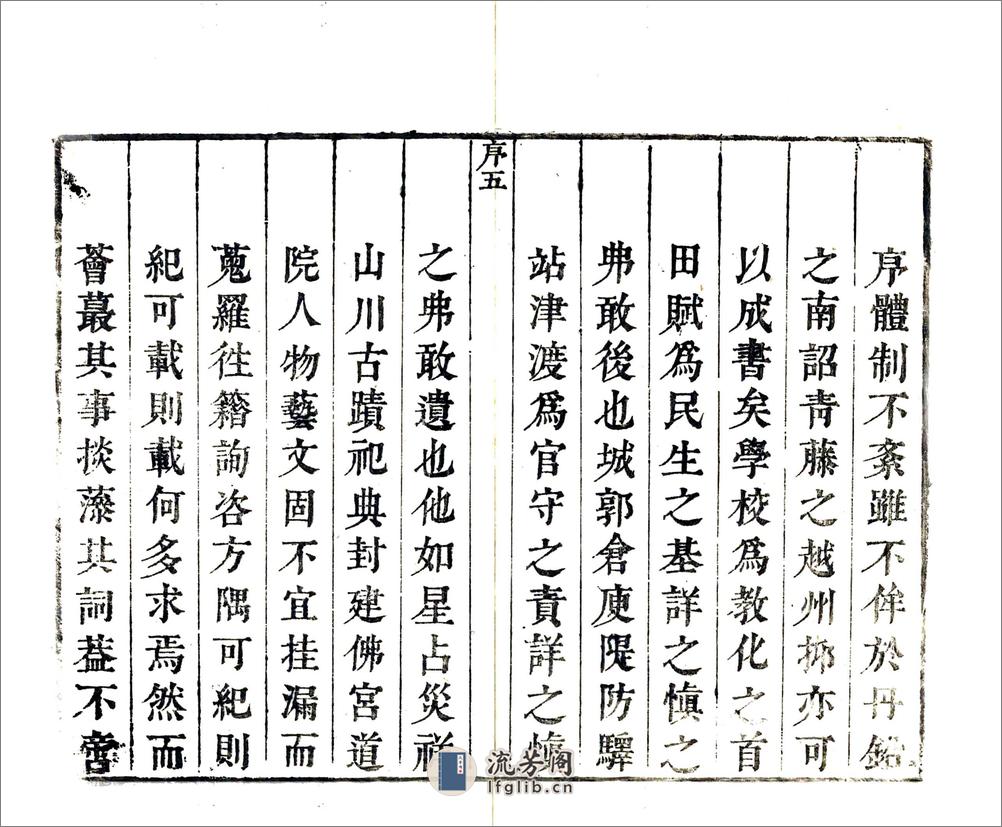 序體制不紊雖不侔於丹鉛
之南詔青藤之越州抑亦可
以成書矣學校爲教化之首
田賦爲民生之基詳之慎之
弗敢後也城郭倉庾隄防驛
站津渡爲官守之責詳之慎
序五
之弗敢遺也他如星占災祥
山川古蹟祀典封建佛宮道
院人物藝文固不宜挂漏而
蒐羅徃籍詢咨方隅可紀則
紀可載則載何多求焉然而
薈蕞其事掞藻其詞葢不啻
流芳閣
lfglib.cn